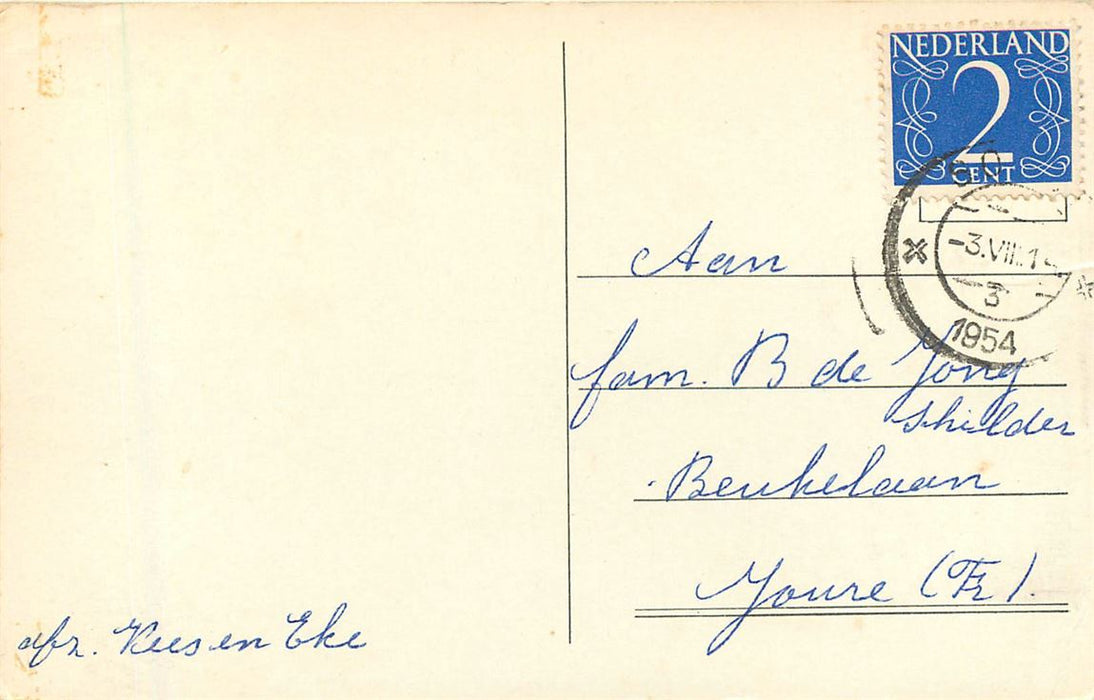 NEDERLAND
2
CENT
-3.VIII.1
3
1954
Aan
fam. B de Jong
schilder
Beukelaan
Joure (Fr).
afz. Kees en Eke